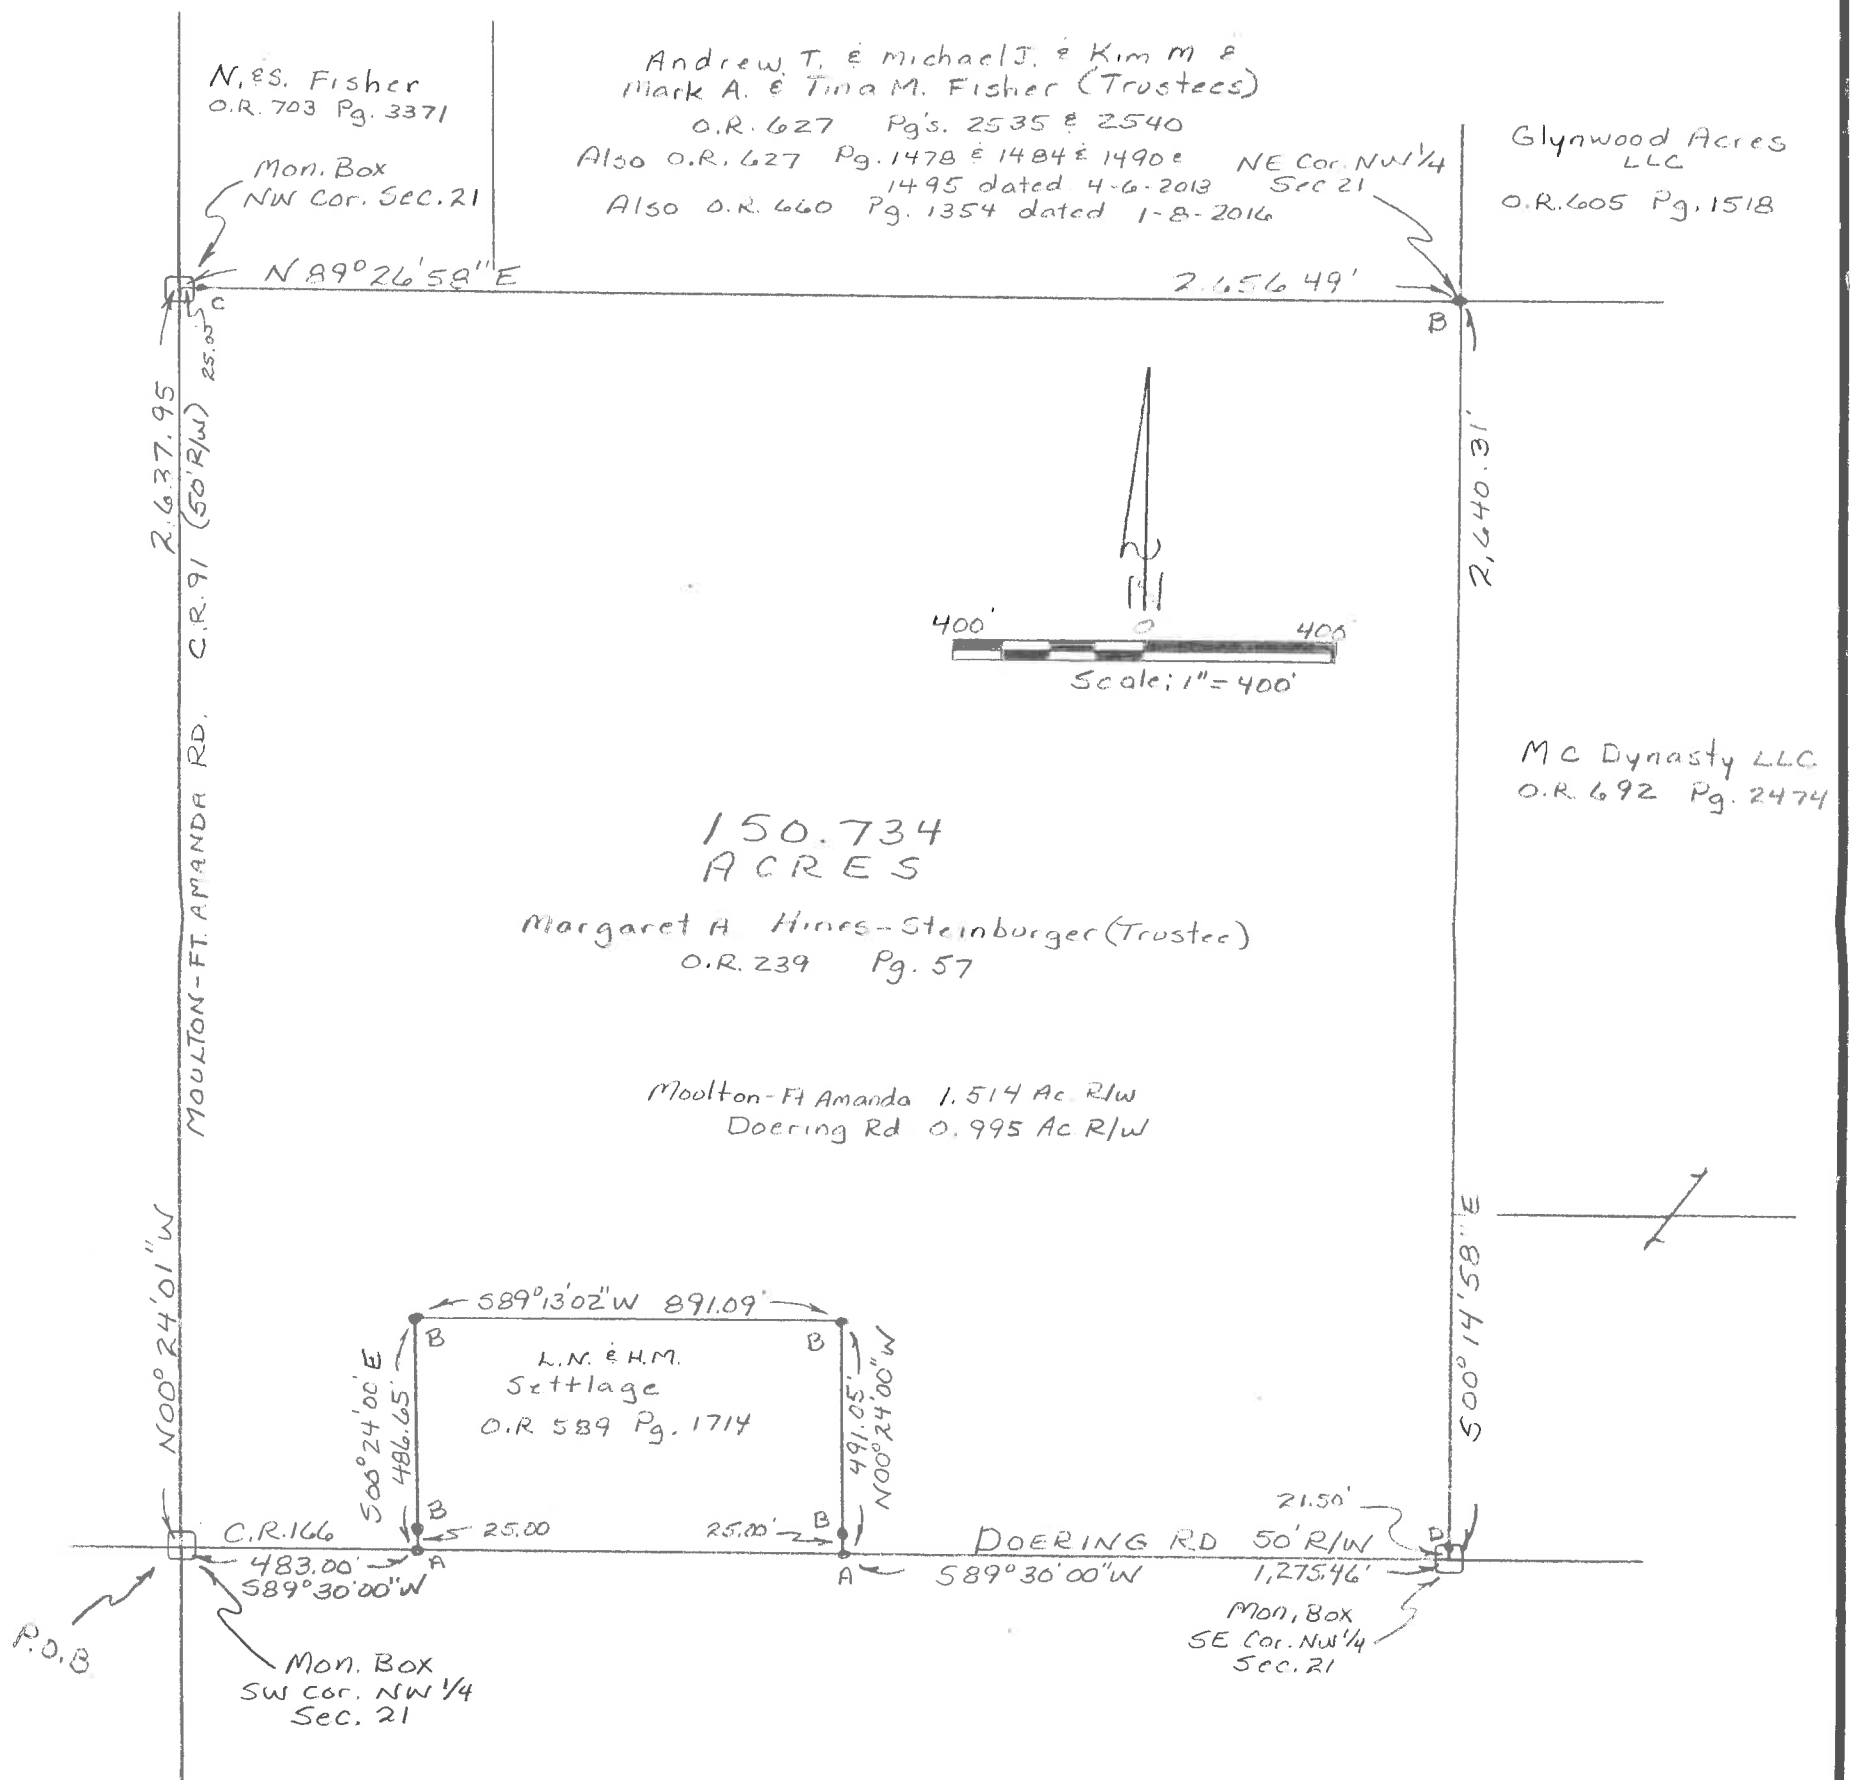 N. & S. Fisher
O.R. 703 Pg. 3371
Mon. Box
NW Cor. Sec. 21
Andrew T. & Michael J. & Kim M &
Mark A. & Tina M. Fisher (Trustees)
O.R. 627 Pg's. 2535 & 2540
Also O.R. 627 Pg. 1478 & 1484 & 1490 &
1495 dated 4-6-2013
Also O.R. 660 Pg. 1354 dated 1-8-2016
NE Cor. NW 1/4
Sec 21
Glynwood Acres
LLC
O.R. 605 Pg. 1518
N 89° 26' 58" E
2,656.49'
C
25.00'
B
2,637.95
C.R. 91 (50' R/W)
MOULTON-FT. AMANDA RD.
N00° 24' 01" W
2,640.31'
400' 0 400'
Scale; 1" = 400'
MC Dynasty LLC
O.R. 692 Pg. 2474
150.734
ACRES
Margaret A Hines-Steinburger (Trustee)
O.R. 239 Pg. 57
Moulton-Ft Amanda 1.514 Ac R/W
Doering Rd 0.995 Ac R/W
S00° 14' 58" E
S89° 13' 02" W 891.09'
B
B
L.N. & H.M.
Settlage
O.R 589 Pg. 1714
S00° 24' 00" E
486.65'
491.05'
N00° 24' 00" W
B
25.00
25.00'
B
21.50'
C.R. 166
DOERING RD 50' R/W
D
483.00'
S89° 30' 00" W
A
A
S89° 30' 00" W
1,275.46'
P.O.B
Mon. Box
SW Cor. NW 1/4
Sec. 21
Mon. Box
SE Cor. NW 1/4
Sec. 21